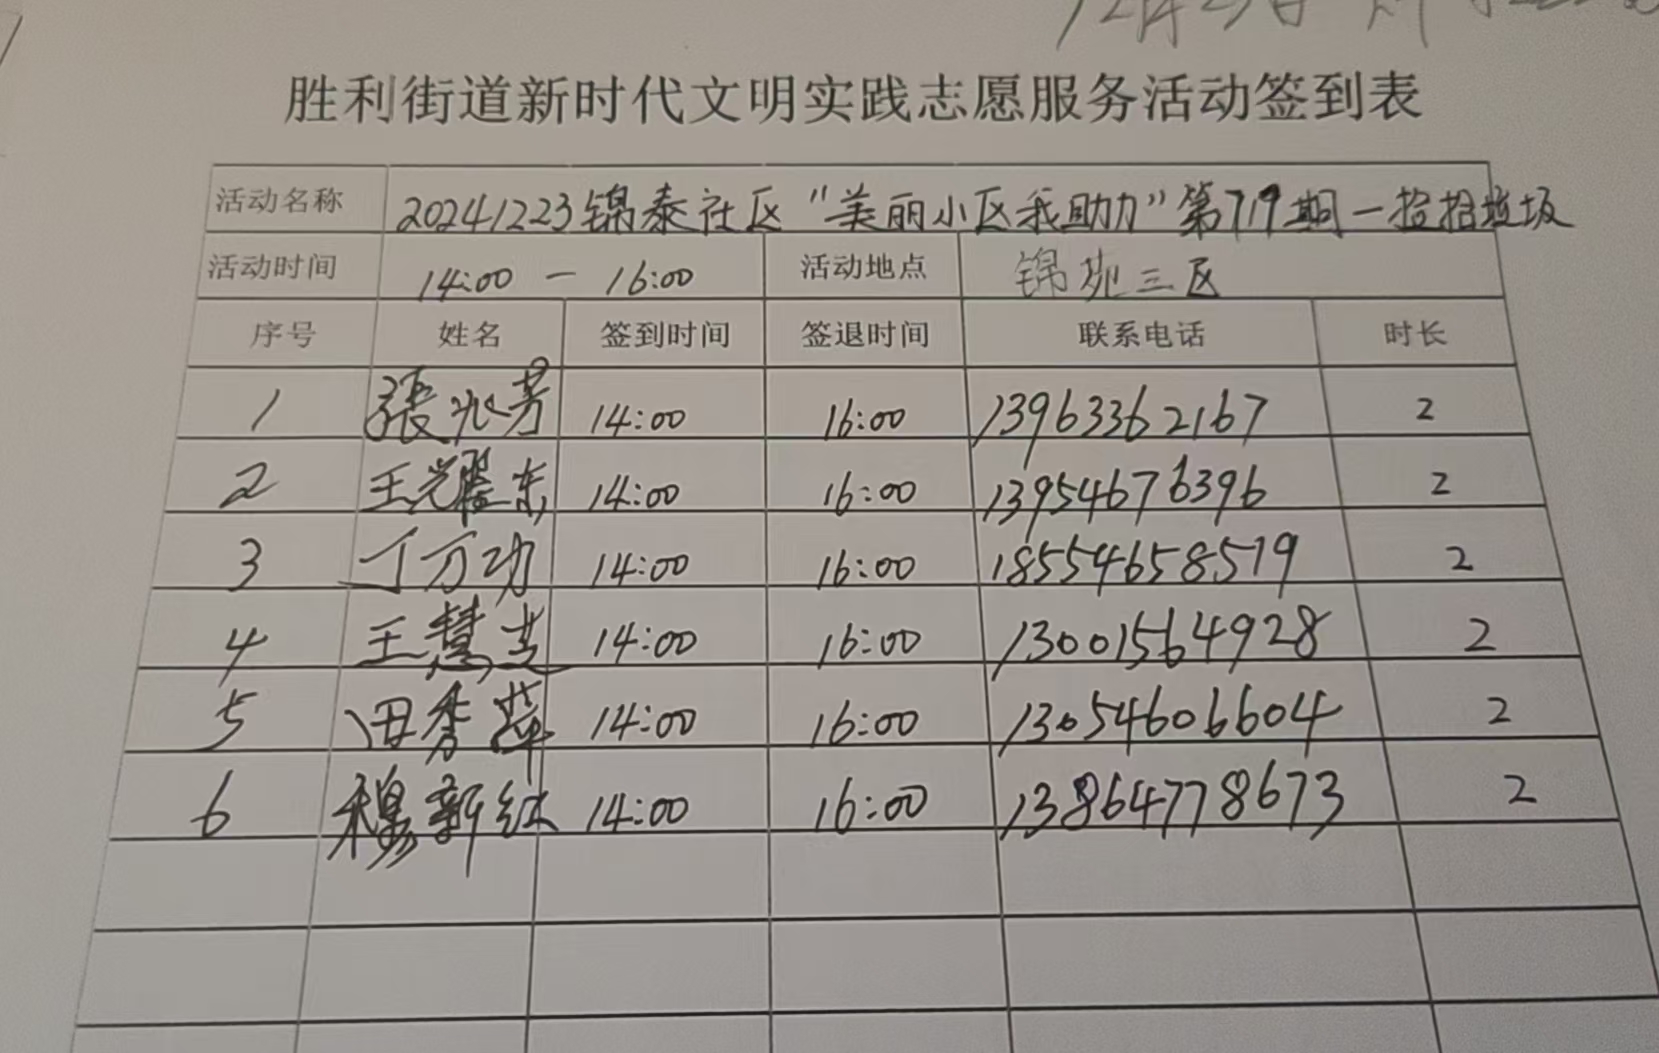 12月23日
胜利街道新时代文明实践志愿服务活动签到表
活动名称 20241223锦泰社区“美丽小区我助力”第719期一捡拾垃圾
活动时间 14:00 — 16:00 活动地点 锦苑三区
序号 姓名 签到时间 签退时间 联系电话 时长
1 張兆芳 14:00 16:00 13963362167 2
2 王耀东 14:00 16:00 13954676396 2
3 丁万功 14:00 16:00 18554658519 2
4 王慧芝 14:00 16:00 13001564928 2
5 田秀萍 14:00 16:00 13054606604 2
6 穆新红 14:00 16:00 13864778673 2